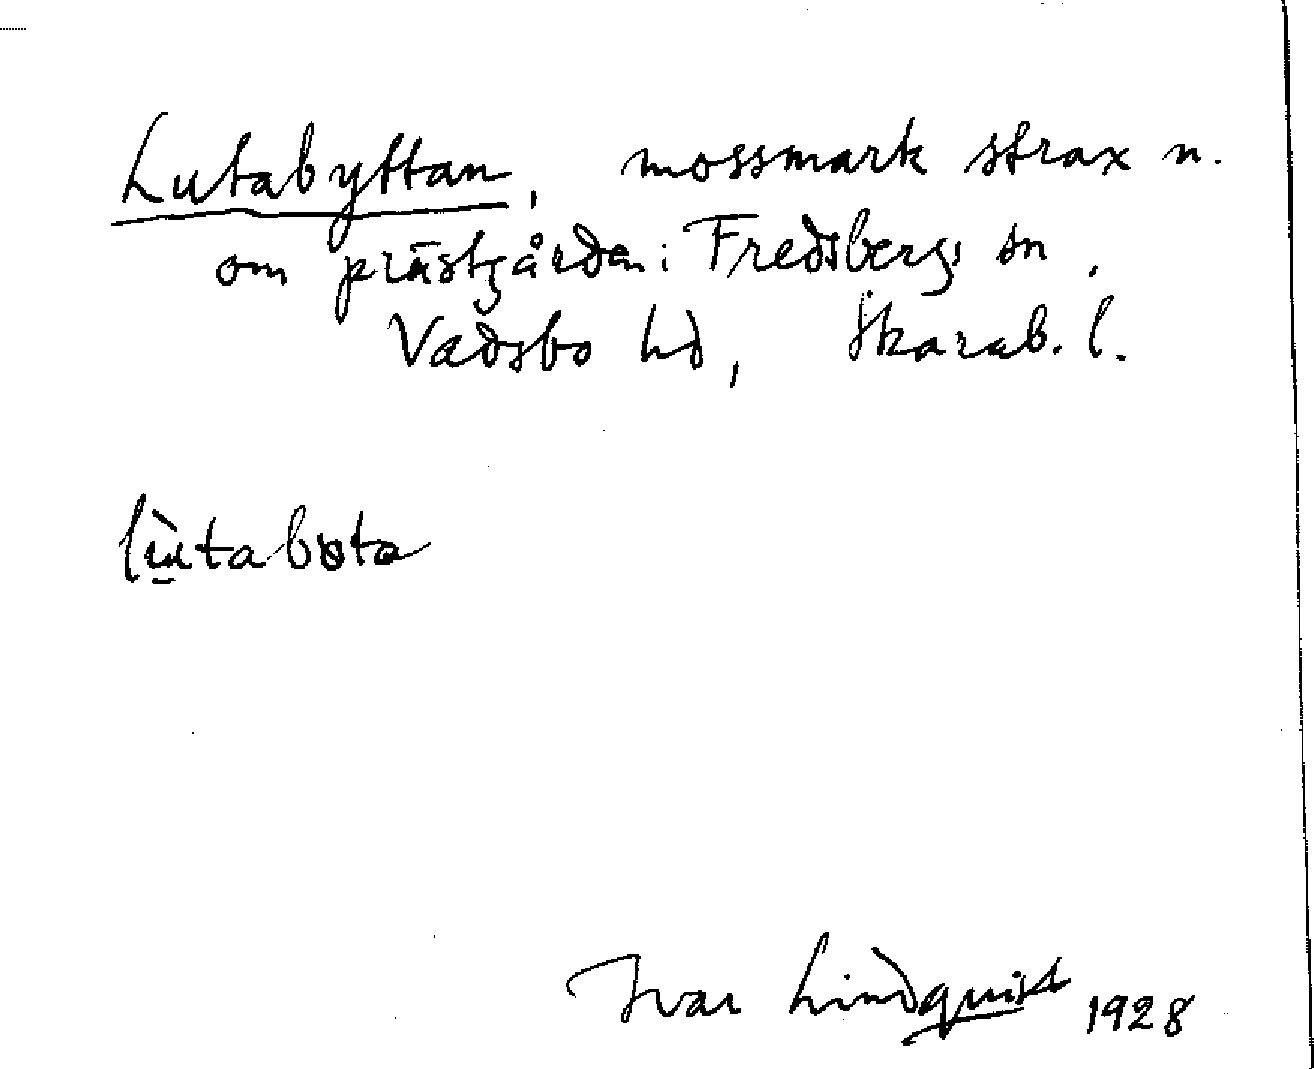 Lutabyttan, mossmark strax n.
om prästgården i Fredsbergs sn,
Vadsbo hd, Skarab. l.
lùtabøta
Ivar Lindquist 1928